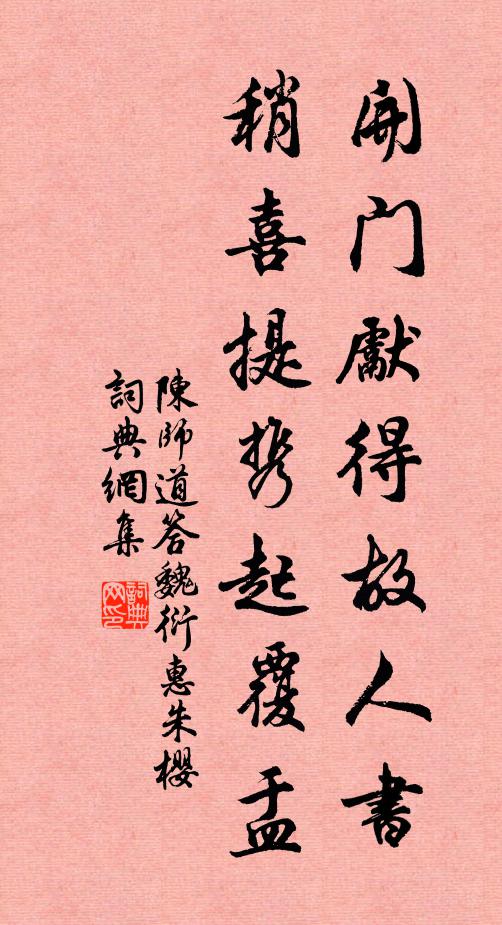 開门獻得故人書
稍喜提携起覆盂
陳師道答魏衍惠朱櫻
詞典網集
詞典网印